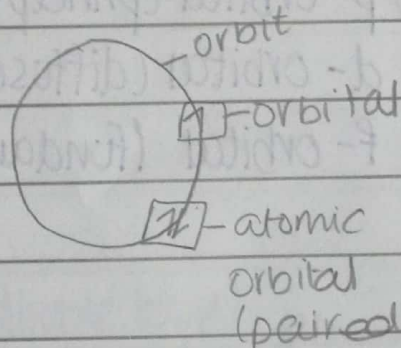 orbit
orbital
atomic
orbital
(paired